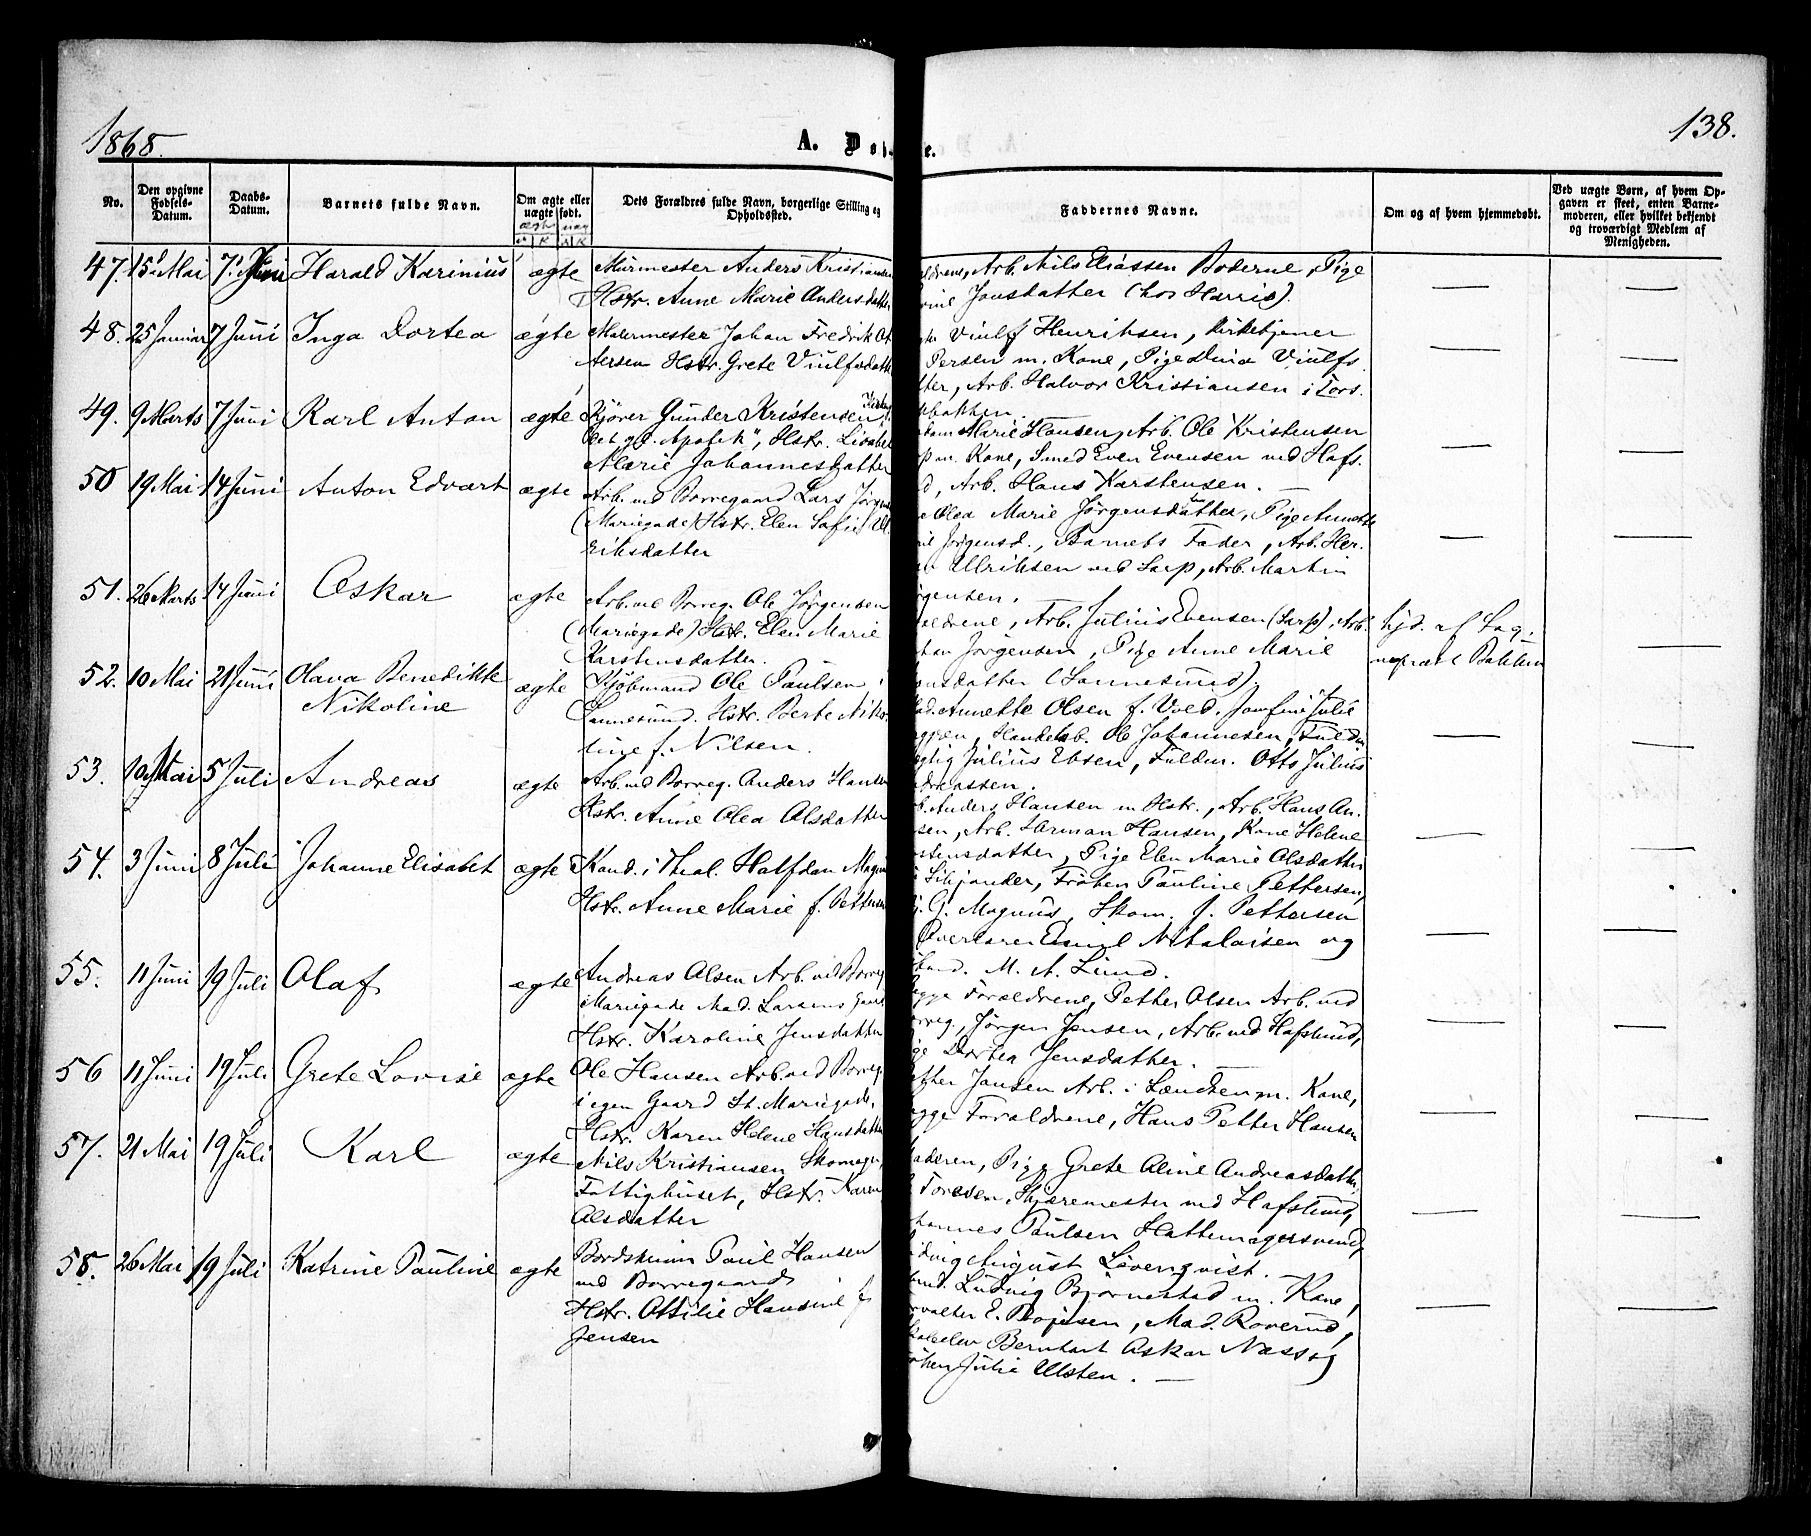 1868.
138.
A. Døb e.
No.
Den opgivne Fødsels-Datum.
Daabs-Datum.
Barnets fulde Navn.
Om ægte eller uægte født.
Dets Forældres fulde Navn, borgerlige Stilling og Opholdssted.
Faddernes Navne.
Om og af hvem hjemmedøbt.
Ved uægte Børn, af hvem Opgaven er skeet, enten Barnemoderen, eller hvilket bekjendt og troværdigt Medlem af Menigheden.
47. 15 Mai 7 Juni Harald Karinius ægte Murmester Anders Kristiansen
Hstr. Anne Marie Andersdatter
Arb. Nils Eliassen Boderne, Pige
Jonsdatter (hos Harris).
48. 25 Januar 7 Juni Inga Dortea ægte Malermester Johan Fredrik
Hstr. Grete Viulfsdatt
Viulf Henriksen, Kirketjener
Persen m. Kone, Pige Viulfs
tter, Arb. Halvor Kristiansen i Tors
bakken
49. 9 Marts 7 Juni Karl Anton ægte Kjører Gunder Kristensen
det gl. Apotek", Hstr. Lisabet
Marie Johannesdatter
Marie Hansen, Arb. Ole Kristensen
m. Kone, Smed Even Evensen ved Hafs.
d, Arb. Hans Karstensen. —
50 19 Mai 14 Juni Anton Edvart ægte Arb. ved Borregaard Lars Jørgens
(Mariegade) Hstr. Elen Safie Ul
riksdatter
Olea Marie Jørgensdatter, Pige Annette
Jørgensd., Barnets Fader, Arb. Her.
Ulriksen ved Sarp, Arb. Martin
rgensen.
51. 26 Marts 14 Juni Oskar ægte Arb. ved Borreg. Ole Jørgensen
(Mariegade) Hstr. Elen Marie
Karstensdatter.
ældrene, Arb. Julius Evensen (Sarp), Arb.
Jørgensen, Pige Anne Marie
nsdatter (Sannesund).
hjd. af Sog-
nepræst Bakken
52. 10 Mai 21 Juni Olava Benedikte
Nikoline
ægte Kjøbmand Ole Paulsen i
Sannesund. Hstr. Berte Niko
line f. Nilsen.
ad. Annette Olsen f. Vold, Jomf. Julie
Handelsb. Ole Johannesen, Fuldm
Julius Ebsen, Fuldm. Otto Julius
dreassen.
53. 10 Mai 5 Juli Andreas ægte Arb. ved Borreg. Anders Hansen
Hstr. Anne Olea Olsdatter
Anders Hansen m Hstr., Arb. Hans An.
sen, Arb. Herman Hansen, Kone Helene
stensdatter, Pige Elen Marie Olsdatter
54. 3 Juni 8 Juli Johanne Elisabet ægte Kand. i Theol. Halfdan Magnus
Hstr. Anne Marie f. Pettersen
Frøken Pauline Pettersen,
G. Magnus, Skom. J. Pettersen
Overlærer Emil Nikolaisen og
M. A. Lund.
55. 11 Juni 19 Juli Olaf ægte Andreas Olsen Arb. ved Borreg
Mariegade Mad. Larsens gaard
Hstr. Karoline Jensdatter
egge Forældrene, Petter Olsen Arb. ved
rreg., Jørgen Jensen, Arb. ved Hafslund,
ige Dortea Jensdatter.
56 11 Juni 19 Juli Grete Lovise ægte Ole Hansen Arb. ved Borreg
i egen Gaard St. Mariegade,
Hstr. Karen Helene Hansdatter
etter Jansen Arb. i m. Kone,
egge Forældrene, Hans Petter Hansen
57. 21 Mai 19 Juli Karl ægte Nils Kristiansen Skomager,
Fattighuset, Hstr. Karen
Olsdatter
Faderen, Pige Grete Aline Andreasdatter,
Toresen, Skjæremester ved Hafslund,
hannes Paulsen Hattemagersvend,
August Løvenqvist. —
58. 26 Mai 19 Juli Katrine Pauline ægte Paul Hansen
ved Borregaard
Hstr. Ottilie Hansine f.
Jensen
Ludvig Bjørnestad m. Kone,
rvalter E. Bojesen, Mad. Roverud,
Bernhart Oskar Ness og
øken Julie Ulsten. —